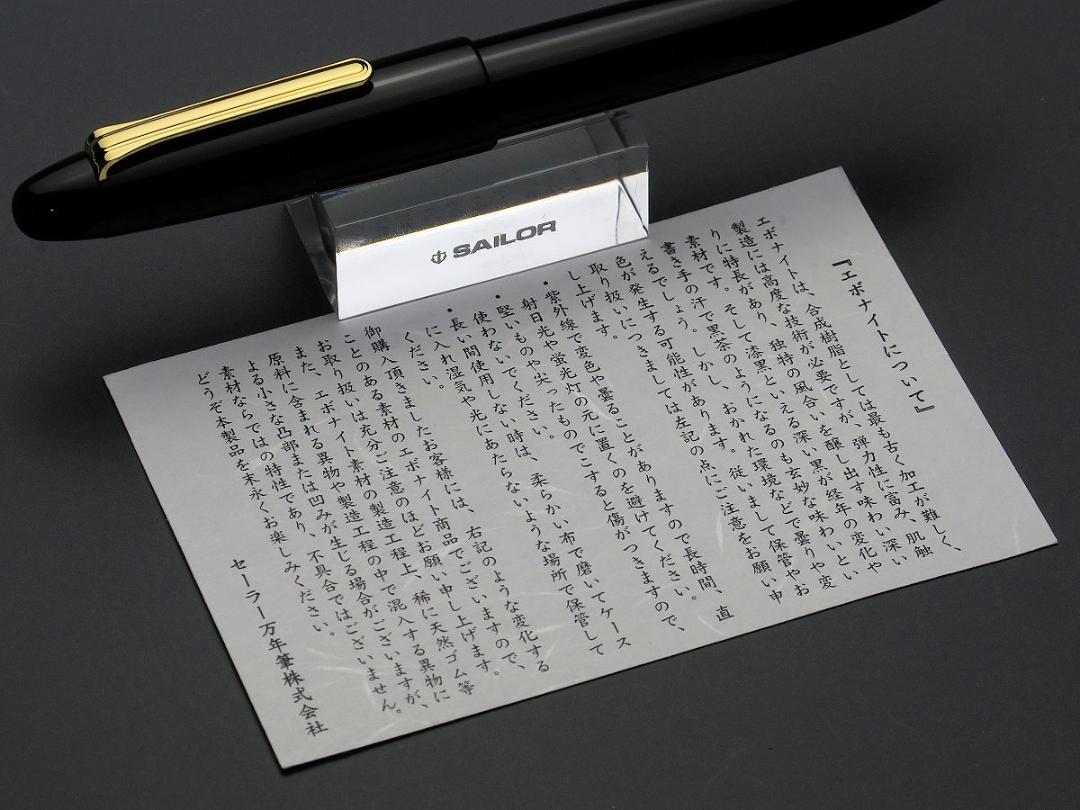 SAILOR
『エボナイトについて』
エボナイトは、合成樹脂としては最も古く加工が難しく、
製造には高度な技術が必要ですが、弾力性に富み、肌触
りに特長があり、独特の風合いを醸し出す味わい深い
素材です。そして漆黒といえる深い黒が経年の変化や
書き手の汗で黒茶のようになるのも玄妙な味わいとい
えるでしょう。しかし、おかれた環境などで曇りや変
色が発生する可能性があります。従いまして保管やお
取り扱いにつきましては左記の点にご注意をお願い申
し上げます。
・紫外線で変色や曇ることがありますので長時間、直
射日光や蛍光灯の元に置くのを避けてください。
・堅いものや尖ったものでこすると傷がつきますので、
使わないでください。
・長い間使用しない時は、柔らかい布で磨いてケース
に入れ湿気や光にあたらないような場所で保管して
ください。
御購入頂きましたお客様には、右記のような変化する
ことのある素材のエボナイト商品でございますので、
お取り扱いは充分ご注意のほどお願い申し上げます。
また、エボナイト素材の製造工程上、稀に天然ゴム等
原料に含まれる異物や製造工程の中で混入する異物に
よる小さな凸部または凹みが生じる場合がございますが、
素材ならではの特性であり、不具合ではございません。
どうぞ本製品を末永くお楽しみください。
セーラー万年筆株式会社